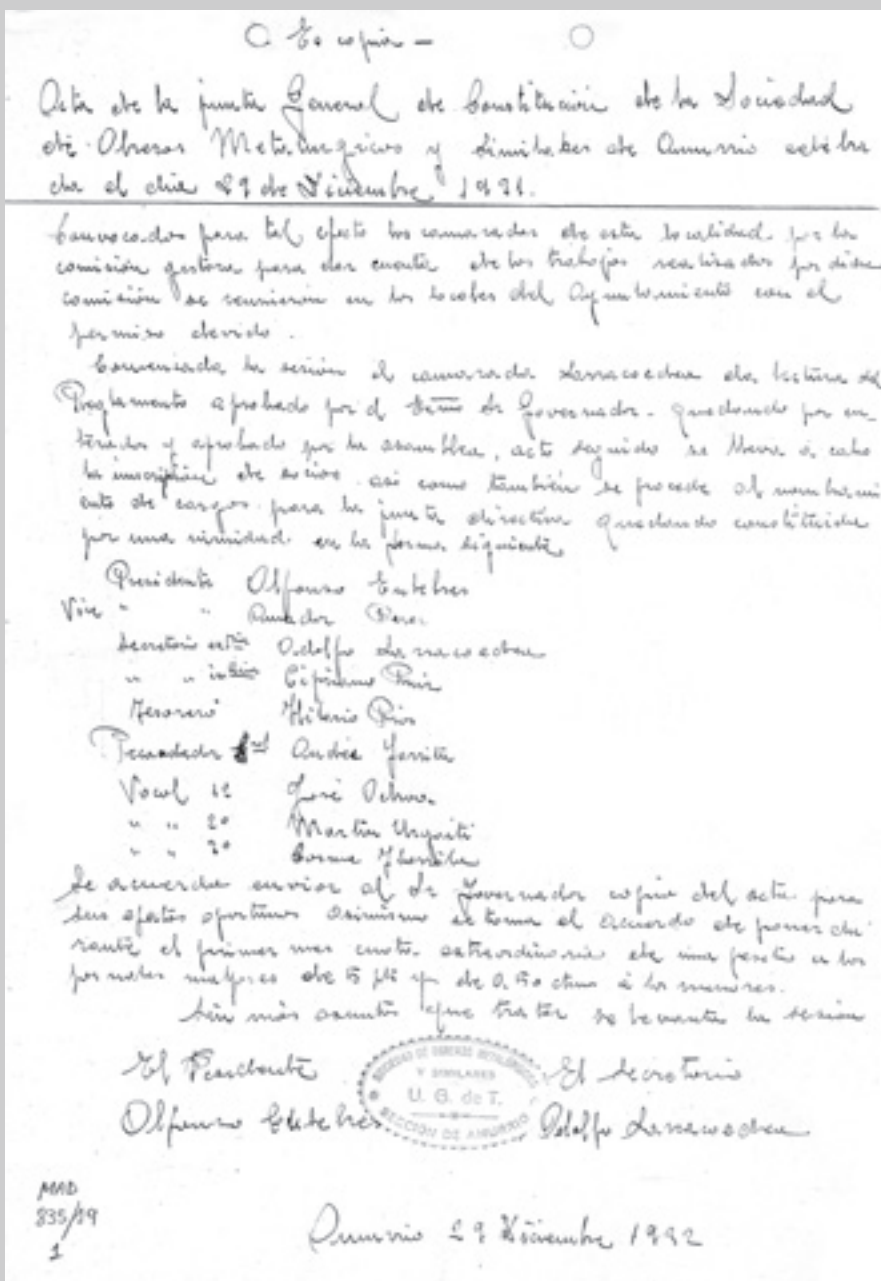 Es copia —
Acta de la junta General de Constitución de la Sociedad
de Obreros Metalurgicos y Similares de Amurrio celebra
da el dia 29 de Diciembre 1931.
Convocados para tal efecto los camaradas de esta localidad por la
comisión gestora para dar cuenta de los trabajos realizados por dicha
comisión se reunieron en los locales del Ayuntamiento con el
permiso devido.
Comenzada la sesión el camarada Larracoechea da lectura del
Reglamento aprobado por el Sr Governador. quedando por en-
terados y aprobado por la asamblea, acto seguido se lleva a cabo
la inscripción de socios asi como también se procede al nombrami
ento de cargos para la junta directiva quedando constituida
por una nimidad en la forma siguiente
Presidente Alfonso
Vice " " Amador Perez
Secretario Adolfo Larracoechea
" " Cipriano Ruiz
Tesorero Hilario Rios
Recaudador Andrés
Vocal 1º José Ochoa
" " 2º Martin Urquiti
" " 3º Cosme
Se acuerda enviar al Sr Governador copia del acta para
sus efectos oportunos asimismo se toma el acuerdo de poner du
rante el primer mes cuota extraordinaria de una peseta a los
jornales mayores de 5 pts y de 0,50 ctms a los menores.
Sin más asuntos que tratar se levanta la sesión
El Presidente El Secretario
SOCIEDAD DE OBREROS METALURGICOS
Y SIMILARES
U. G. de T.
SECCION DE AMURRIO
Alfonso Adolfo Larracoechea
MAD
835/19
1
Amurrio 29 Diciembre 1932